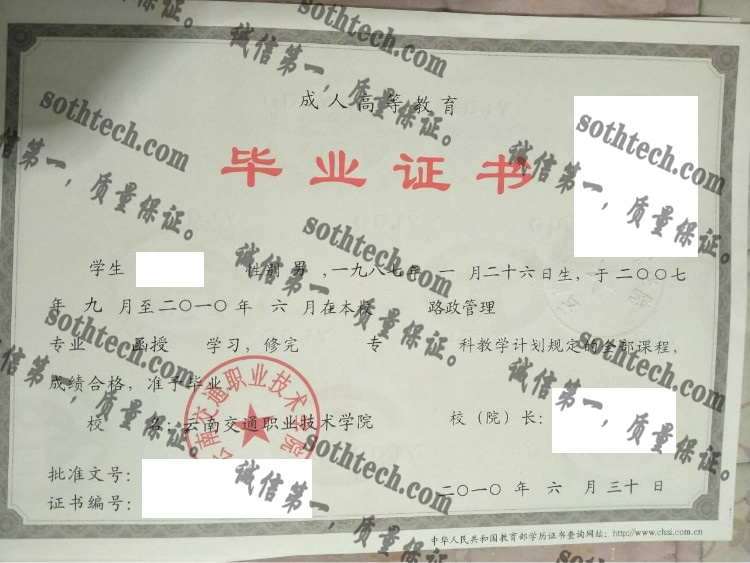 成人高等教育
毕业证书
学生 性别 男 ,一九八七年 一 月二十六日生，于二〇〇七
年 九 月至二〇一〇年 六 月在本校 路政管理
专业 函授 学习，修完 专 科教学计划规定的全部课程，
成绩合格，准予毕业
校 名：云南交通职业技术学院
校（院）长：
批准文号：
证书编号：
二〇一〇 年 六 月 三十 日
中华人民共和国教育部学历证书查询网址：http://www.chsi.com.cn
云南交通职业技术学院
sothtech.com
诚信第一，质量保证。
sothtech.com
诚信第一，质量保证。
sothtech.com
诚信第一，质量保证。
sothtech.com
诚信第一，质量保证。
sothtech.com
诚信第一，质量保证。
sothtech.com
诚信第一，质量保证。
sothtech.com
诚信第一，质量保证。
sothtech.com
诚信第一，质量保证。